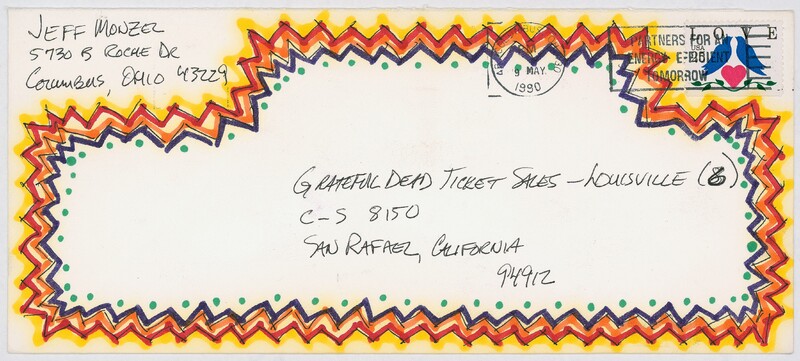 JEFF MONZEL
5730 B ROCHE DR
COLUMBUS, OHIO 43229
PM
9 MAY
1990
PARTNERS FOR AN
ENERGY EFFICIENT
TOMORROW
LOVE
USA
25
GRATEFUL DEAD TICKET SALES – LOUISVILLE (8)
C-S 8150
SAN RAFAEL, CALIFORNIA
94912